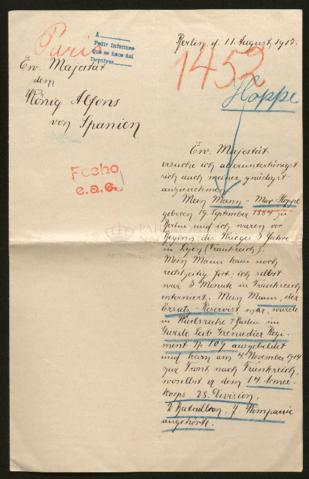 Berlin, d. 11. August, 1915.
Pari
A
Pedir informes
1452
Hoppe
Ew. Majestät
dem
König Alfons
von Spanien
Fecho
e.a.e.
Ew. Majestät
ersuche ich alleruntertänigst
sich auch meiner gnädigst
anzunehmen.
Mein Mann - Max Hoppe
geboren 19. September 1884 in
Berlin und ich waren vor
Beginn des Krieges 3 Jahre
in Lyon (Frankreich).
Mein Mann kam noch
rechtzeitig fort, ich selbst
war 3 Monate in Frankreich
interniert. Mein Mann, der
Ersatz-Reservist war, wurde
in Karlsruhe i/Baden im
Garde Leib Grenadier Regi-
ment N. 109 ausgebildet
und kam am 4. November 1914
zur Front nach Frankreich,
woselbst er dem 14. Armee-
korps, 28. Division,
Bataillon, 7. Kompanie
angehörte.